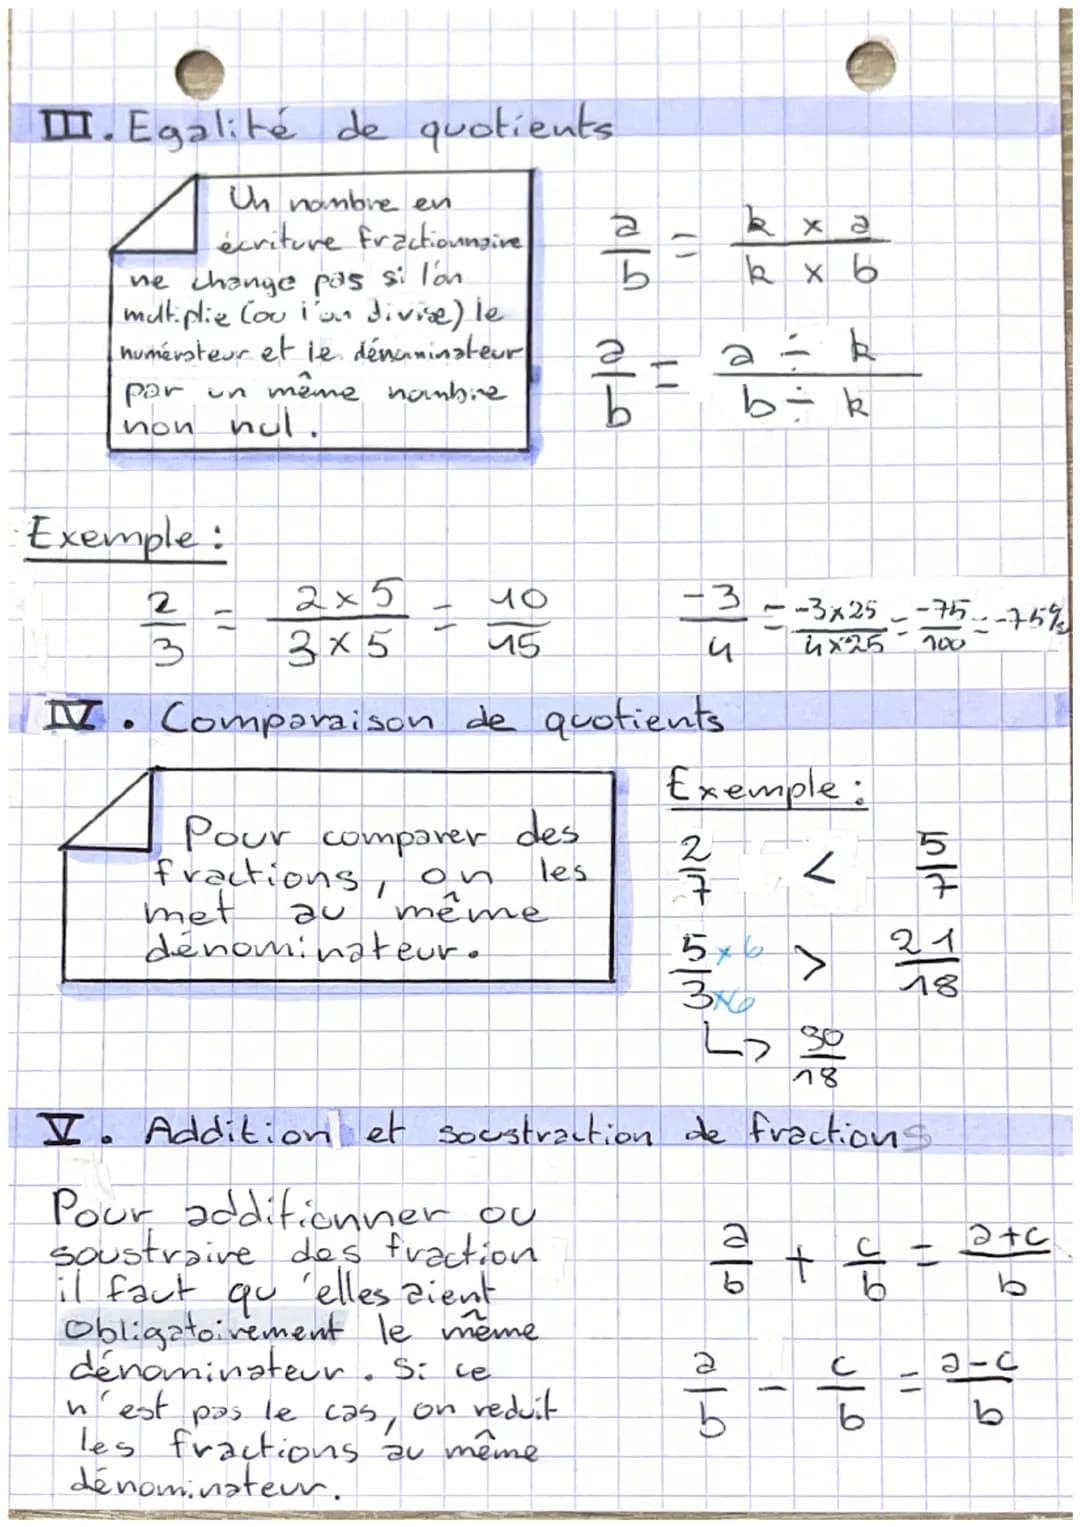 III. Egalité de quotients
Un nombre en
écriture fractionnaire
ne change pas si l'on
multiplie (ou l'on divise) le
numérateur et le dénominateur
par un même nombre
non nul.
a/b = k × a / k × b
a/b = a ÷ k / b ÷ k
Exemple :
2/3 = 2×5 / 3×5 = 10/15
-3/4 = -3×25 / 4×25 = -75/100 = -75%
IV. Comparaison de quotients
Pour comparer des
fractions, on les
met au même
dénominateur.
Exemple :
2/7 < 5/7
5×6 / 3×6 > 21/18
↳ 30/18
V. Addition et soustraction de fractions
Pour additionner ou
soustraire des fraction
il faut qu'elles aient
obligatoirement le même
dénominateur. Si ce
n'est pas le cas, on reduit
les fractions au même
dénominateur.
a/b + c/b = a+c / b
a/b - c/b = a-c / b